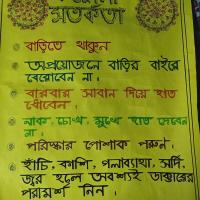 সতর্কতা
বাড়িতে থাকুন
অপ্রয়োজনে বাড়ির বাইরে
বেরোবেন না।
বারবার সাবান দিয়ে হাত
ধোবেন।
নাক, চোখ, মুখে হাত দেবেন
না।
পরিষ্কার পোশাক পরুন।
হাঁচি, কাশি, গলাব্যাথা, সর্দি,
জ্বর হলে অবশ্যই ডাক্তারের
পরামর্শ নিন।